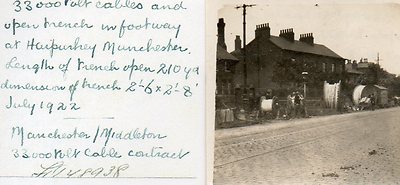 33000 volt cables and
open trench in footway
at Harpurhey Manchester.
Length of trench open 210 yd
dimension of trench 2'-6 x 2'-8"
July 1922
Manchester/Middleton
33000 volt cable contract
148938